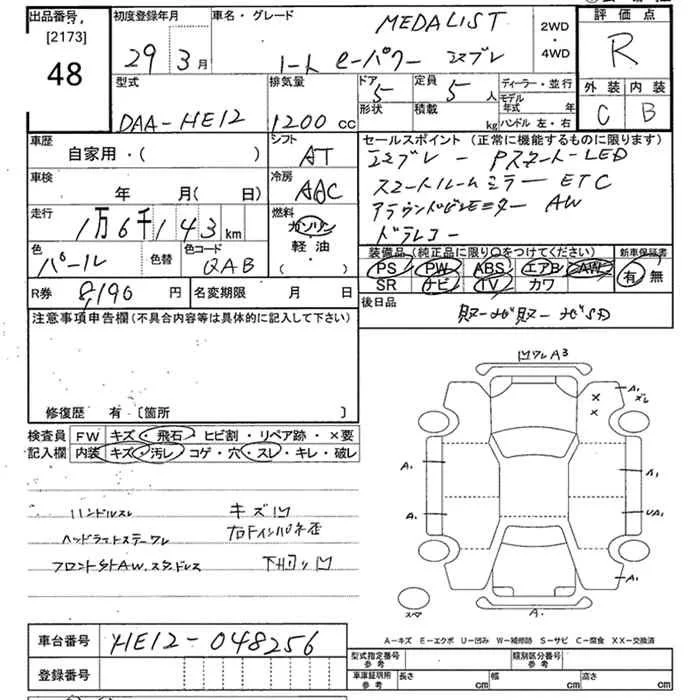 出品番号 初度登録年月 車名・グレード MEDALIST 2WD・4WD 評価点
[2173] 48 29 3月 ノート e-パワー エマブレ R
型式 排気量 ドア 5 定員 5人 ディーラー・並行 外装 内装
DAA-HE12 1200cc 形状 積載 kg モデル年式 年 ハンドル 左・右 C B
車歴 自家用・( ) シフト AT セールスポイント(正常に機能するものに限ります)
エマブレー Pスタート LED
車検 年 月(日) 冷房 AAC スマートルームミラー ETC
走行 1万6千143km 燃料 ガソリン 軽油・( ) アラウンドビューモニター AW
ドラレコー
色 パール 色替 色コード QAB 装備品(純正品に限り○をつけてください) 新車保証書
PS PW ABS エアB AW 有 無
SR ナビ TV カワ
R券 8,190円 名変期限 月 日 後日品
注意事項申告欄(不具合内容等は具体的に記入して下さい)
凹ワレA3
修復歴 有 [箇所 ]
A1
検査員 FW キズ・飛石・ヒビ割・リペア跡・×要
記入欄 内装 キズ・汚レ・コゲ・穴・スレ・キレ・破レ
A. A1
ハンドルスレ キズ凹
A. UA1
ヘッドライトステーワレ 右Fインパネ歪
フロント外AW.スタッドレス 下回り凹
A1
スペ A.
A-キズ E-エクボ U-凹み W-補修跡 S-サビ C-腐食 XX-交換済
車台番号 HE12-048256
型式指定番号 参考 類別区分番号 参考
登録番号 車庫証明用 参考 長さ cm 幅 cm 高さ cm